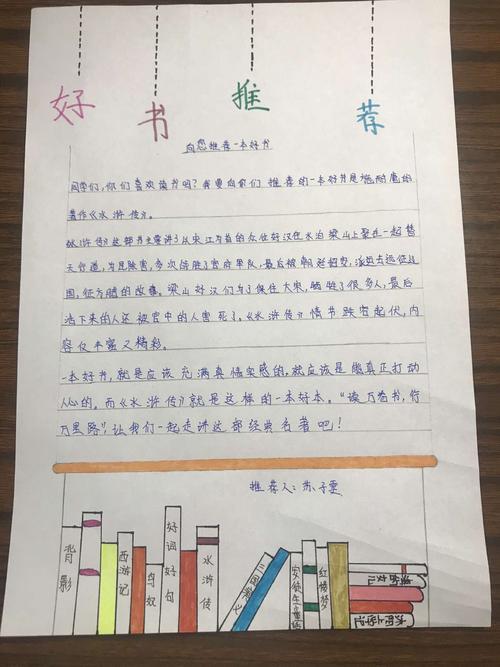 好 书 推 荐
向您推荐一本好书
同学们,你们喜欢读书吗?我要向你们推荐的一本好书是施耐庵的
著作《水浒传》。
《水浒传》这部书主要讲了以宋江为首的众位好汉在水泊梁山上聚在一起替
天行道,为民除害,多次战胜了官府军队,最后被朝廷招安,派
田,征方腊的故事。梁山好汉们为了保住大宋,牺牲了很多人,最后
活下来的人还被宫中的人害死了。《水浒传》情节跌宕起伏,内
容仅丰富又精彩。
一本好书,就是应该充满真情实感的,就应该是能真正打动
人心的。而《水浒传》就是这样的一本好本。“读万卷书,行
万里路”,让我们一起走进这部经典名著吧!
推荐人:苏子雯
背影
西游记
好词好句
水浒传
红楼梦